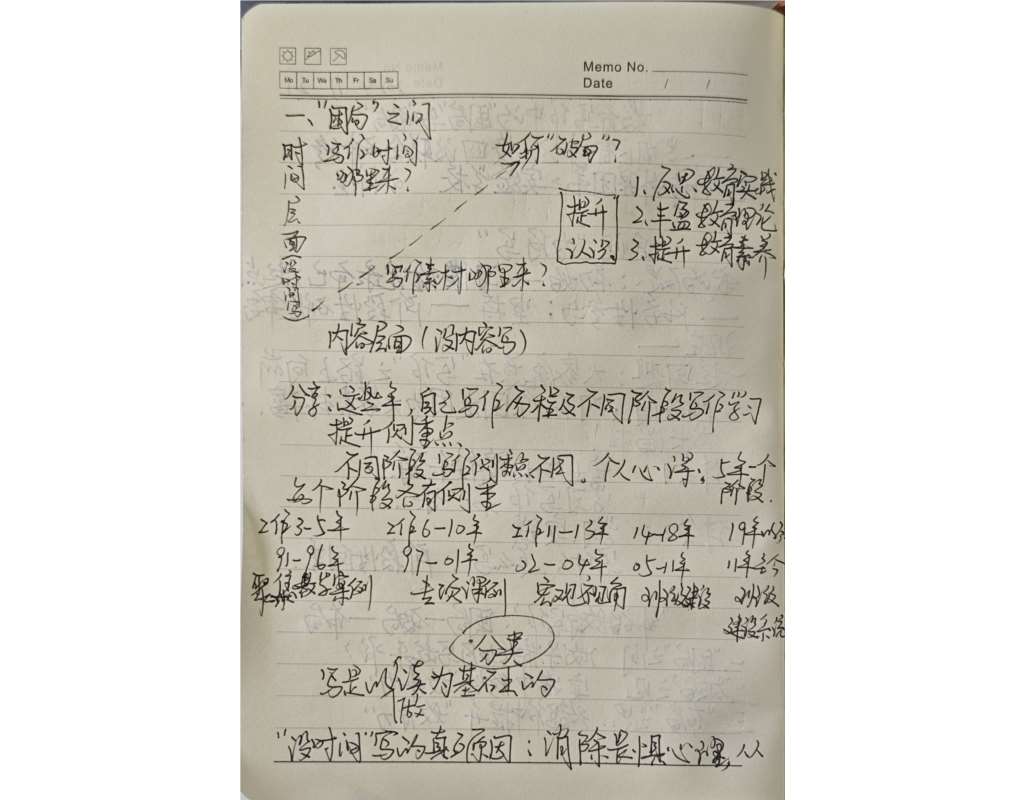 Memo No.
Mo Tu We Th Fr Sa Su
Date / /
一、"困局"之问
时间层面(没时间写)
写作时间
哪里来?
如何"破局"?
提升
认识。
1. 反思教育实践
2. 丰盈教育理论
3. 提升教育素养
写作素材哪里来?
内容层面(没内容写)
分享:这些年,自己写作历程及不同阶段写作学习
提升侧重点、
不同阶段写作侧重点不同。个人心得:5年一个
阶段.
每个阶段各有侧重
工作3-5年 工作6-10年 工作11-13年 14-18年 19年以
91-96年 97-01年 02-04年 05-11年 11年至今
聚焦教学案例 专项课例 宏观 班级建设 班级
建设系统
分类
写是以读为基石的
做
"没时间"写的真正原因:消除畏惧心理,从